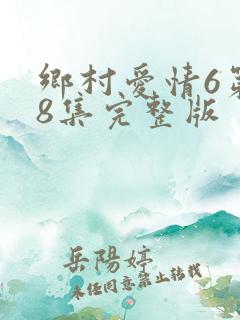 鄉村愛情6第
8集完整版
岳陽婷
未經同意禁止轉載